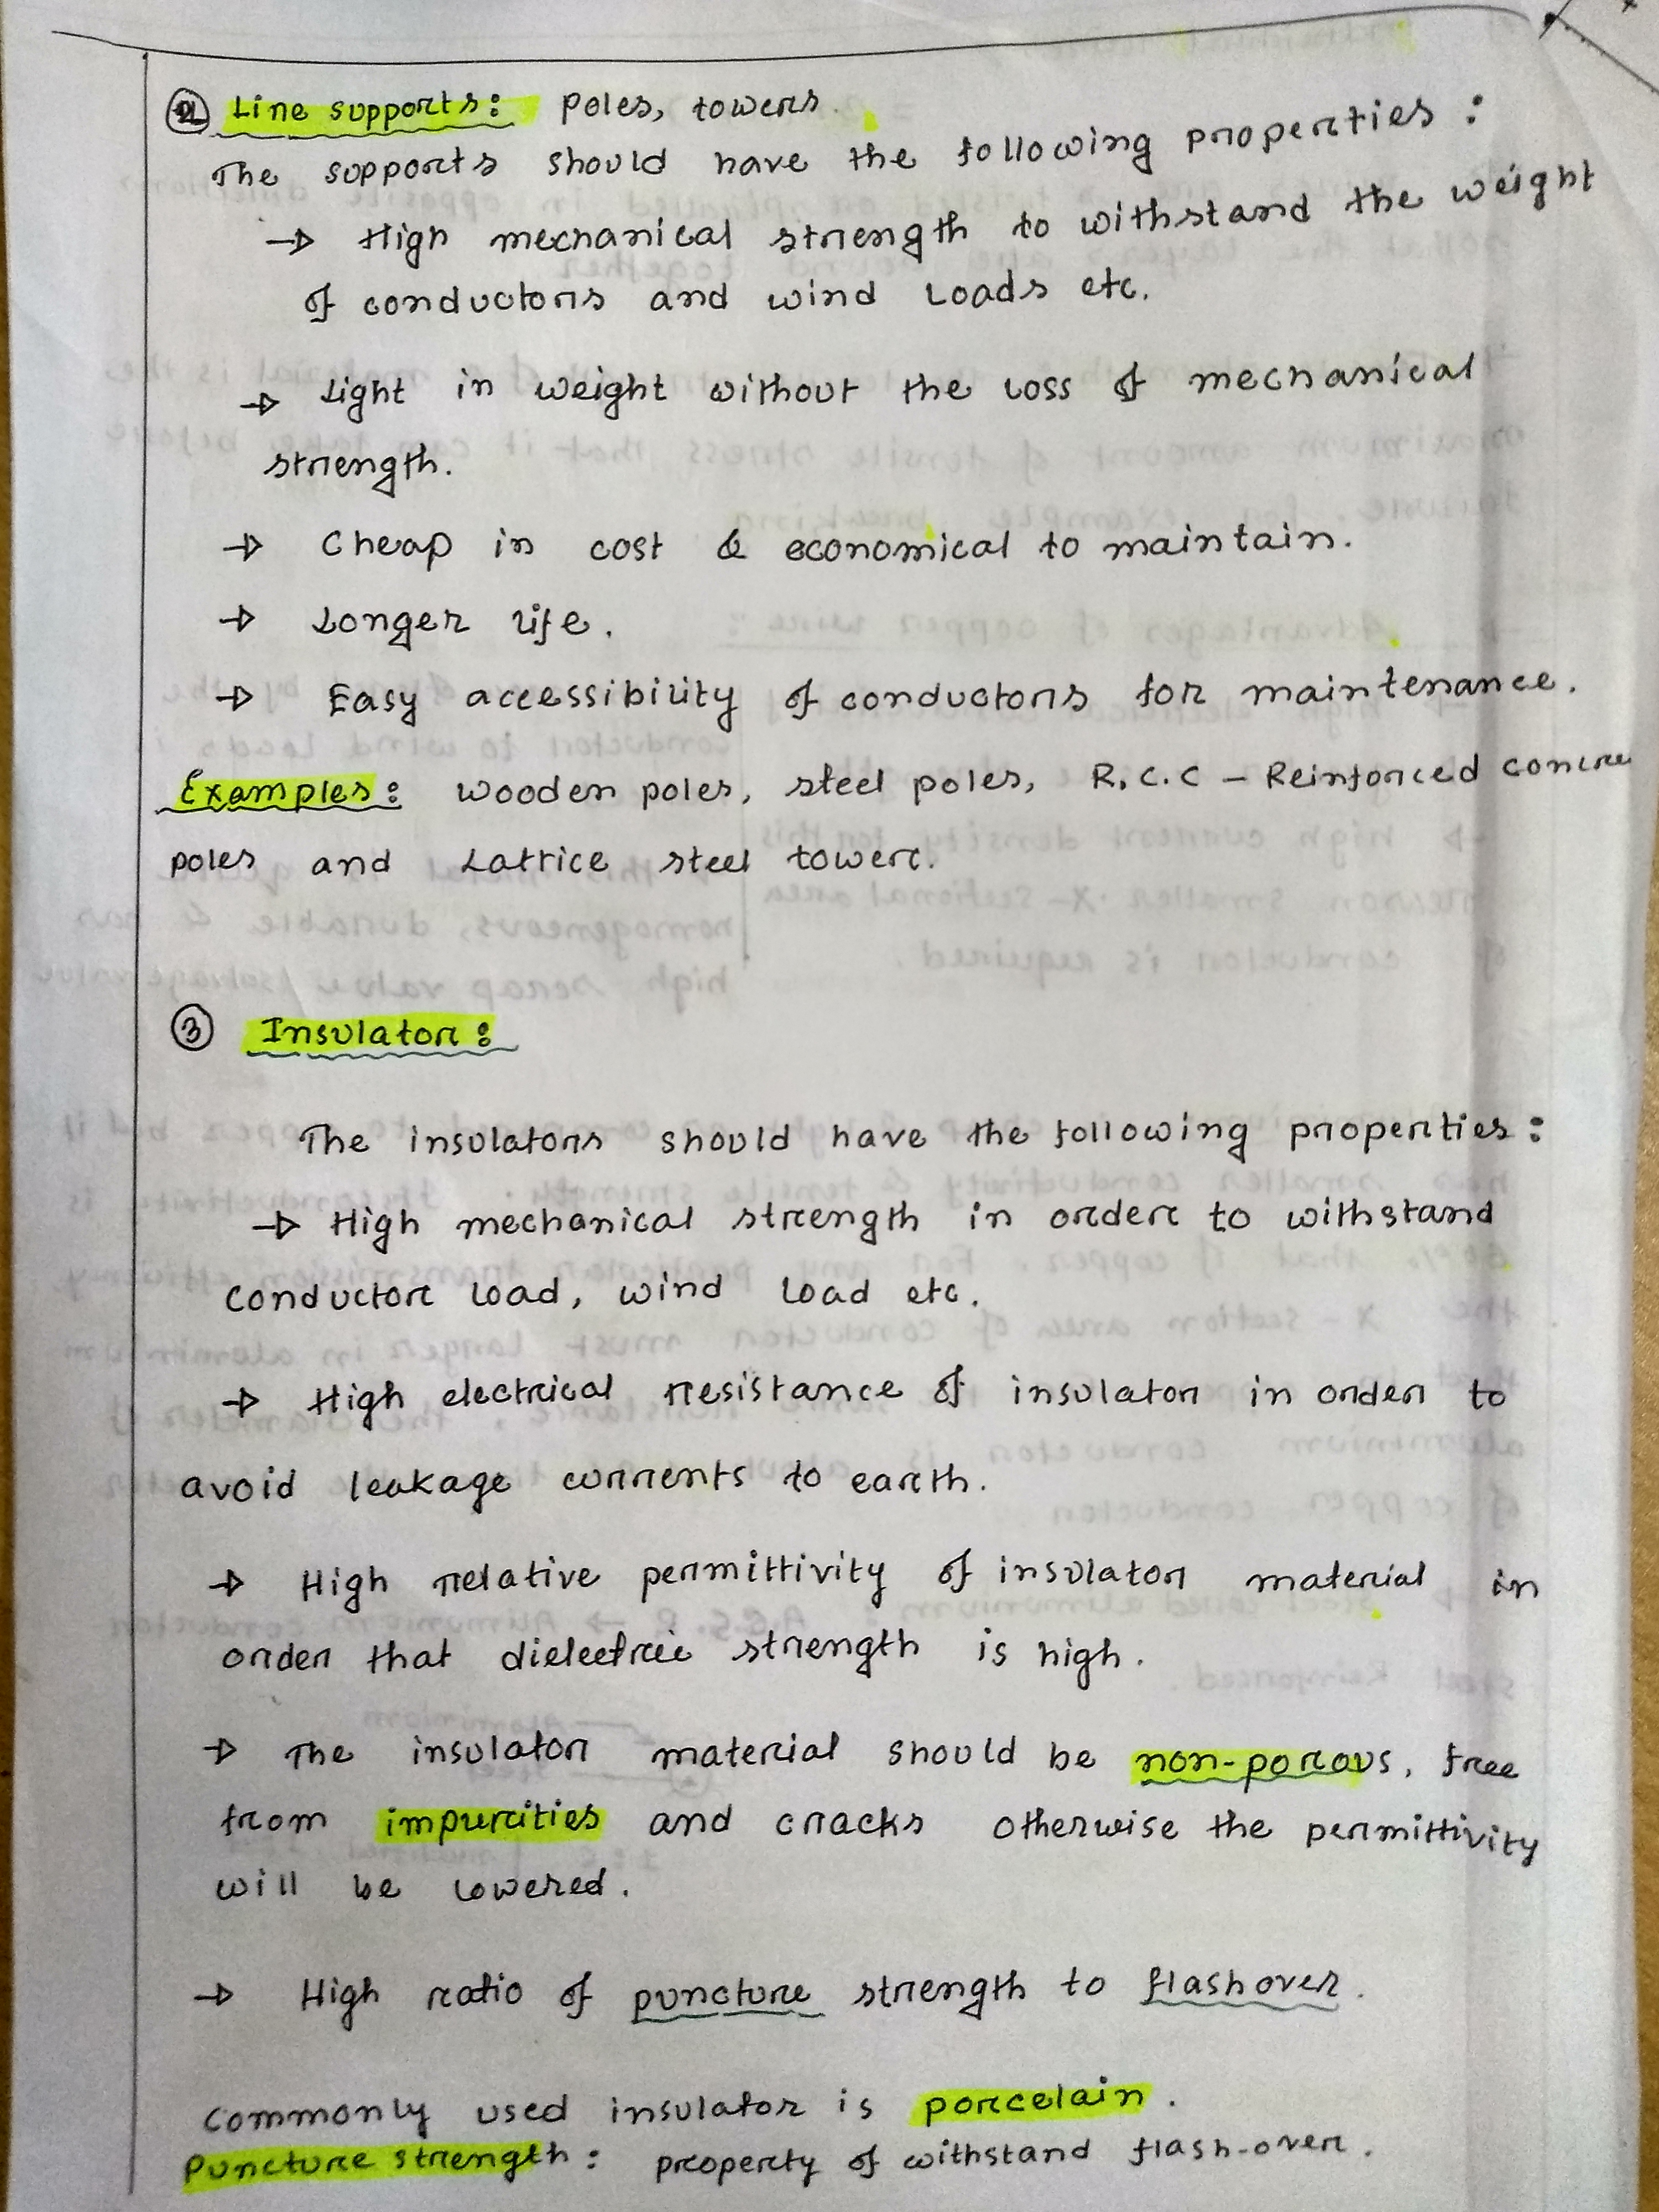 ② Line supports: Poles, towers.
The supports should have the following properties:
→ High mechanical strength to withstand the weight
of conductors and wind loads etc.
→ Light in weight without the loss of mechanical
strength.
→ Cheap in cost & economical to maintain.
→ Longer life.
→ Easy accessibility of conductors for maintenance.
Examples: Wooden poles, steel poles, R.C.C - Reinforced concre
poles and Lattice steel tower.
③ Insulator:
The insulators should have the following properties:
→ High mechanical strength in order to withstand
conductor load, wind load etc.
→ High electrical resistance of insulator in order to
avoid leakage currents to earth.
→ High relative permittivity of insulator material in
order that dielectric strength is high.
→ The insulator material should be non-porous, free
from impurities and cracks otherwise the permittivity
will be lowered.
→ High ratio of puncture strength to flashover.
Commonly used insulator is porcelain.
Puncture strength: property of withstand flash-over.